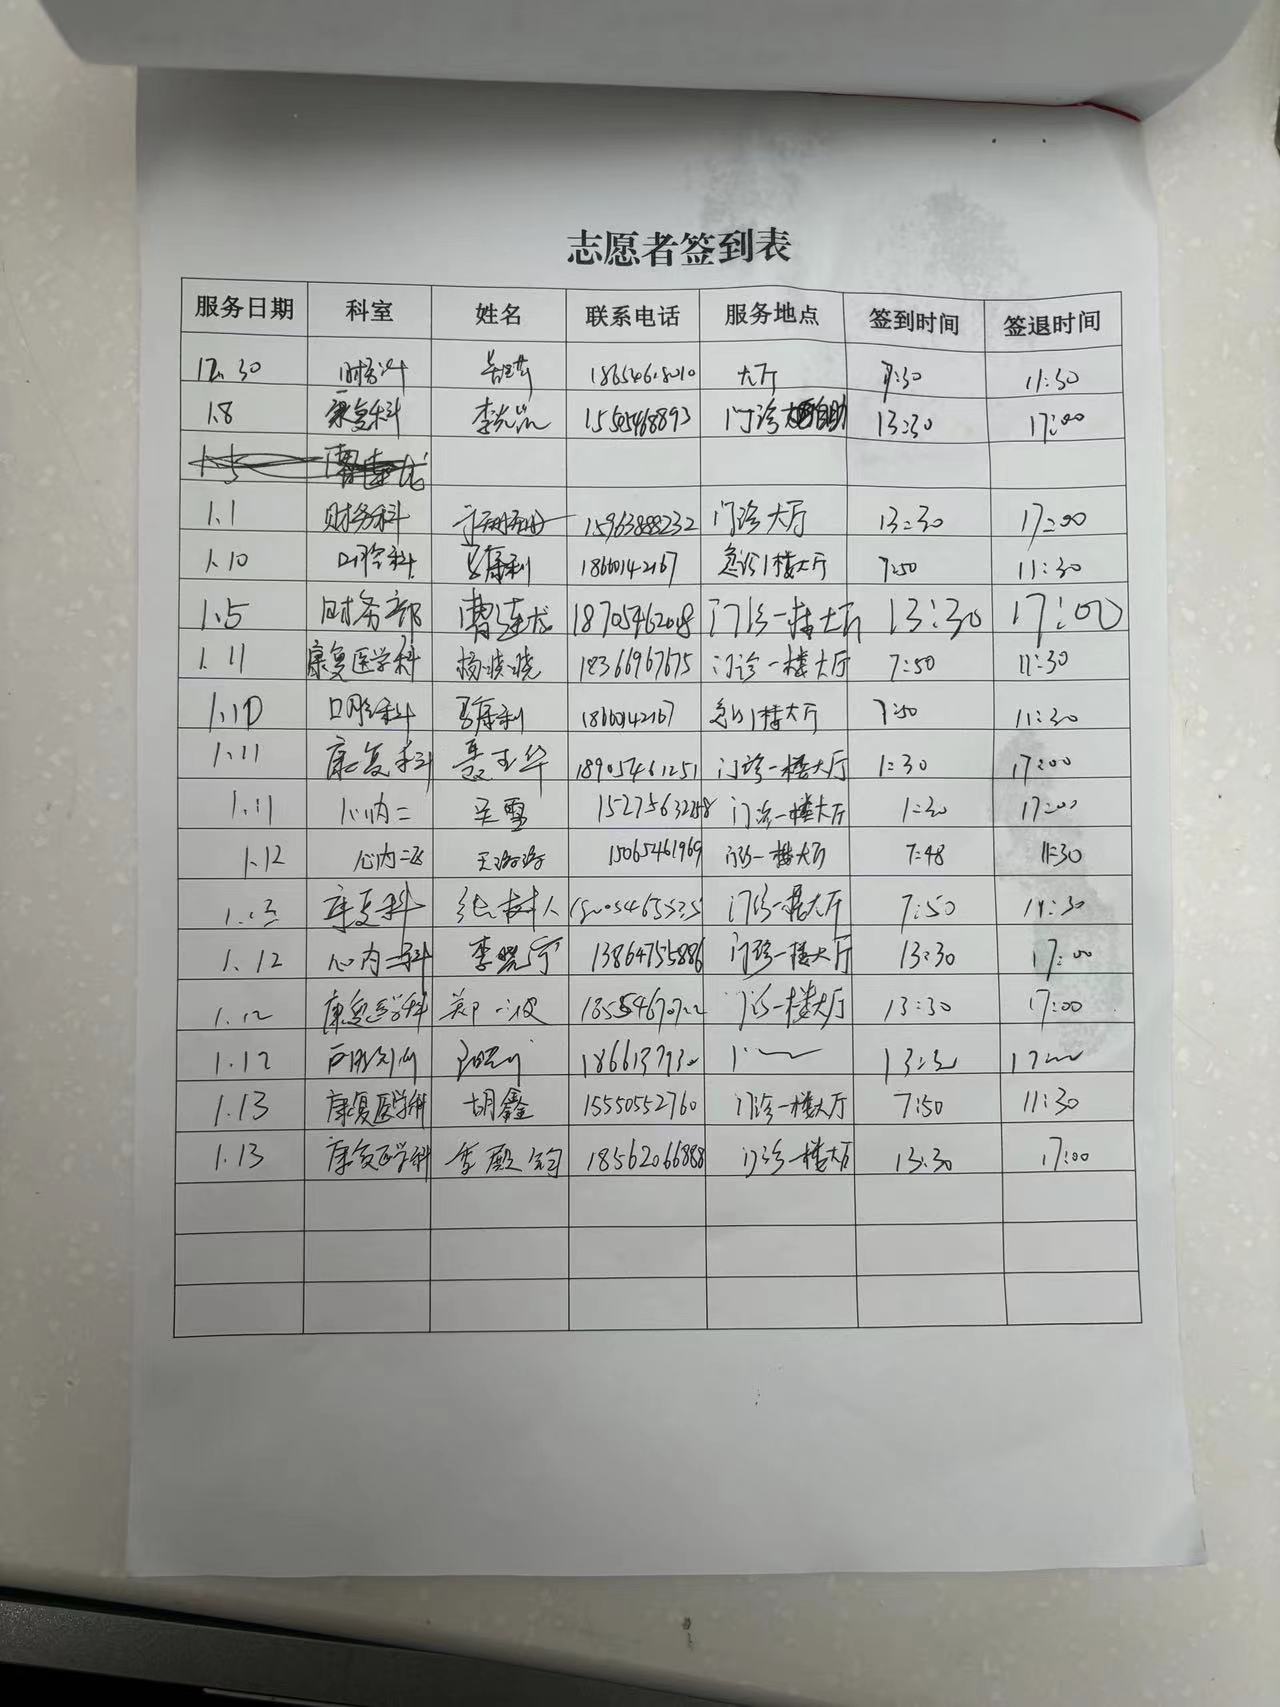 志愿者签到表
服务日期 科室 姓名 联系电话 服务地点 签到时间 签退时间
12.30 财务科 18654618010 大厅 7:30 11:30
1.8 康复科 15505468893 门诊 自助 13:30 17:00
1.5
1.1 财务科 15963888232 门诊大厅 13:30 17:00
1.10 口腔科 马康利 18660142167 急诊1楼大厅 7:50 11:30
1.5 财务部 曹连龙 18705462018 门诊一楼大厅 13:30 17:00
1.11 康复医学科 杨晓晓 18366967675 门诊一楼大厅 7:50 11:30
1.10 口腔科 马康利 18660142167 急诊1楼大厅 7:50 11:30
1.11 康复科 聂玉华 18905461251 门诊一楼大厅 1:30 17:00
1.11 心内二 吴雪 15275632258 门诊一楼大厅 1:30 17:00
1.12 心内二 15065461969 门诊一楼大厅 7:48 11:30
康复科 张树人 门诊一楼大厅 7:50 11:30
1.12 心内二科 李晓宁 13864755886 门诊一楼大厅 13:30 17:00
1.12 康复医学科 郑一波 门诊一楼大厅 13:30 17:00
1.12 13:30
1.13 康复医学科 胡鑫 15550552760 门诊一楼大厅 7:50 11:30
1.13 康复医学科 李殿钧 18562066888 门诊一楼大厅 13:30 17:00